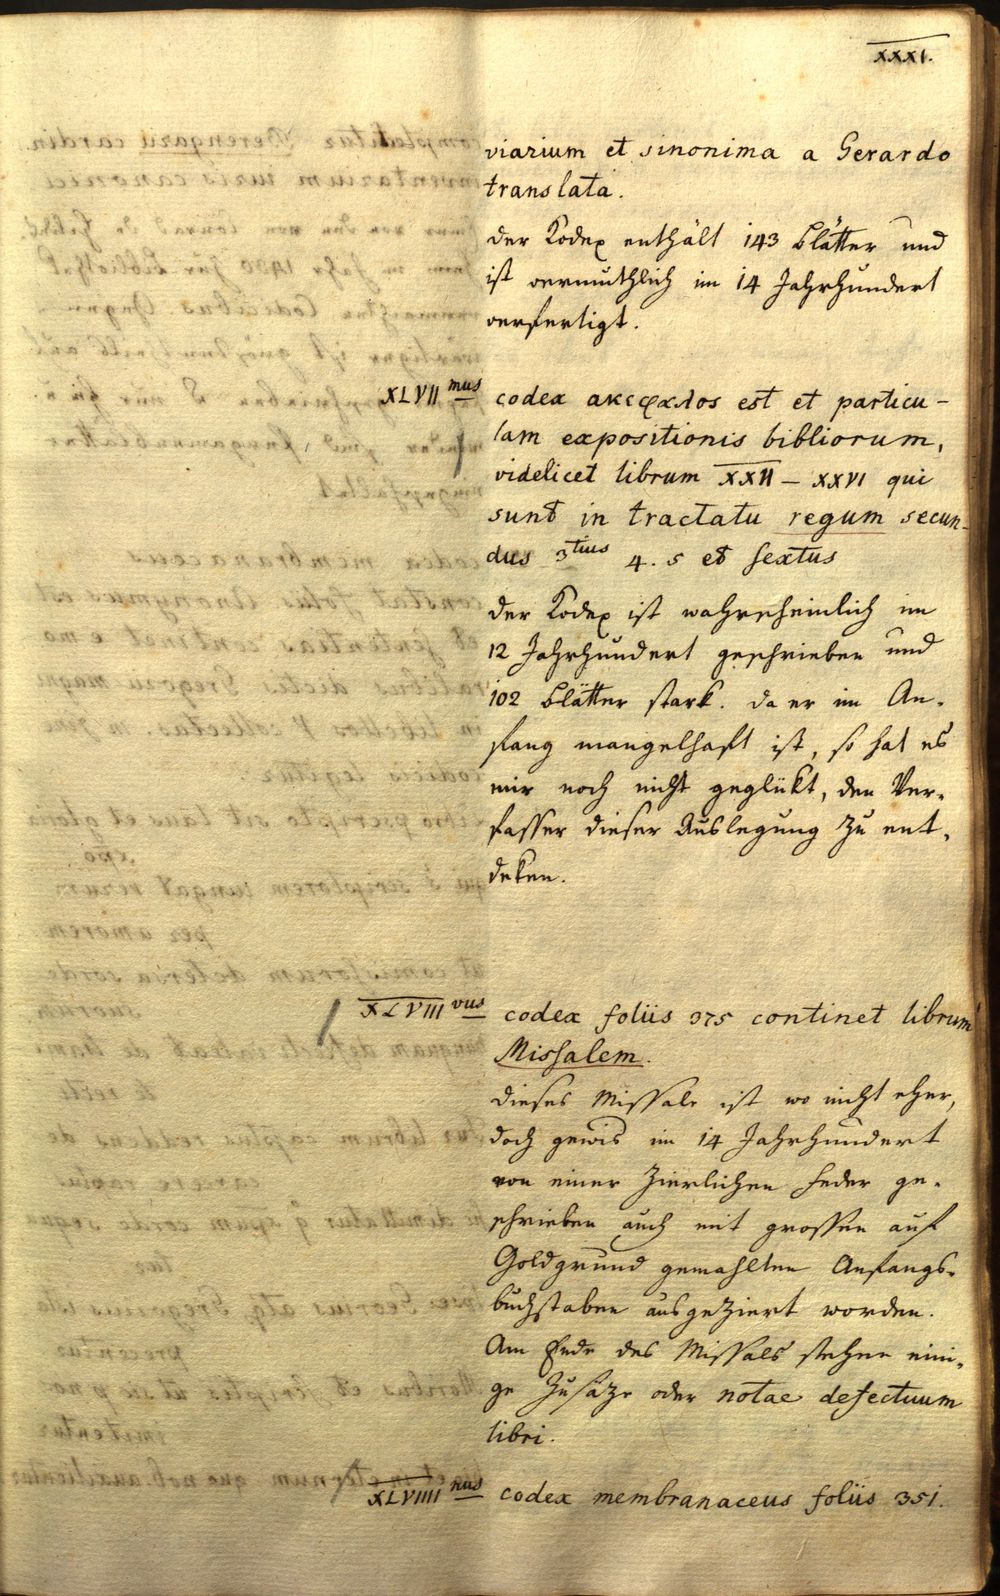 XXXI.
viarium et sinonima a Gerardo
translata.
der Kodex enthält 143 Blätter und
ist vermuthlich im 14 Jahrhundert
verfertigt.
XLVII mus codex ακεφαλος est et particu-
lam expositionis bibliorum,
videlicet librum XXII – XXVI qui
sunt in tractatu regum secun-
dus 3tius 4. 5 et sextus
der Kodex ist wahrscheinlich im
12 Jahrhundert geschrieben und
102 Blätter stark. da er im An-
fang mangelhaft ist, so hat es
mir noch nicht geglükt, den Ver-
fasser dieser Auslegung zu ent-
deken.
XLVIII vus codex foliis 375 continet librum
Missalem.
dieses Missale ist wo nicht eher,
doch gewis im 14 Jahrhundert
von einer zierlichen Feder ge-
schrieben auch mit grossen auf
Goldgrund gemahlten Anfangs-
buchstaben ausgeziert worden.
Am Ende des Missals stehen eini-
ge Zusäze oder notae defectuum
libri.
XLVIIII nus codex membranaceus foliis 351.